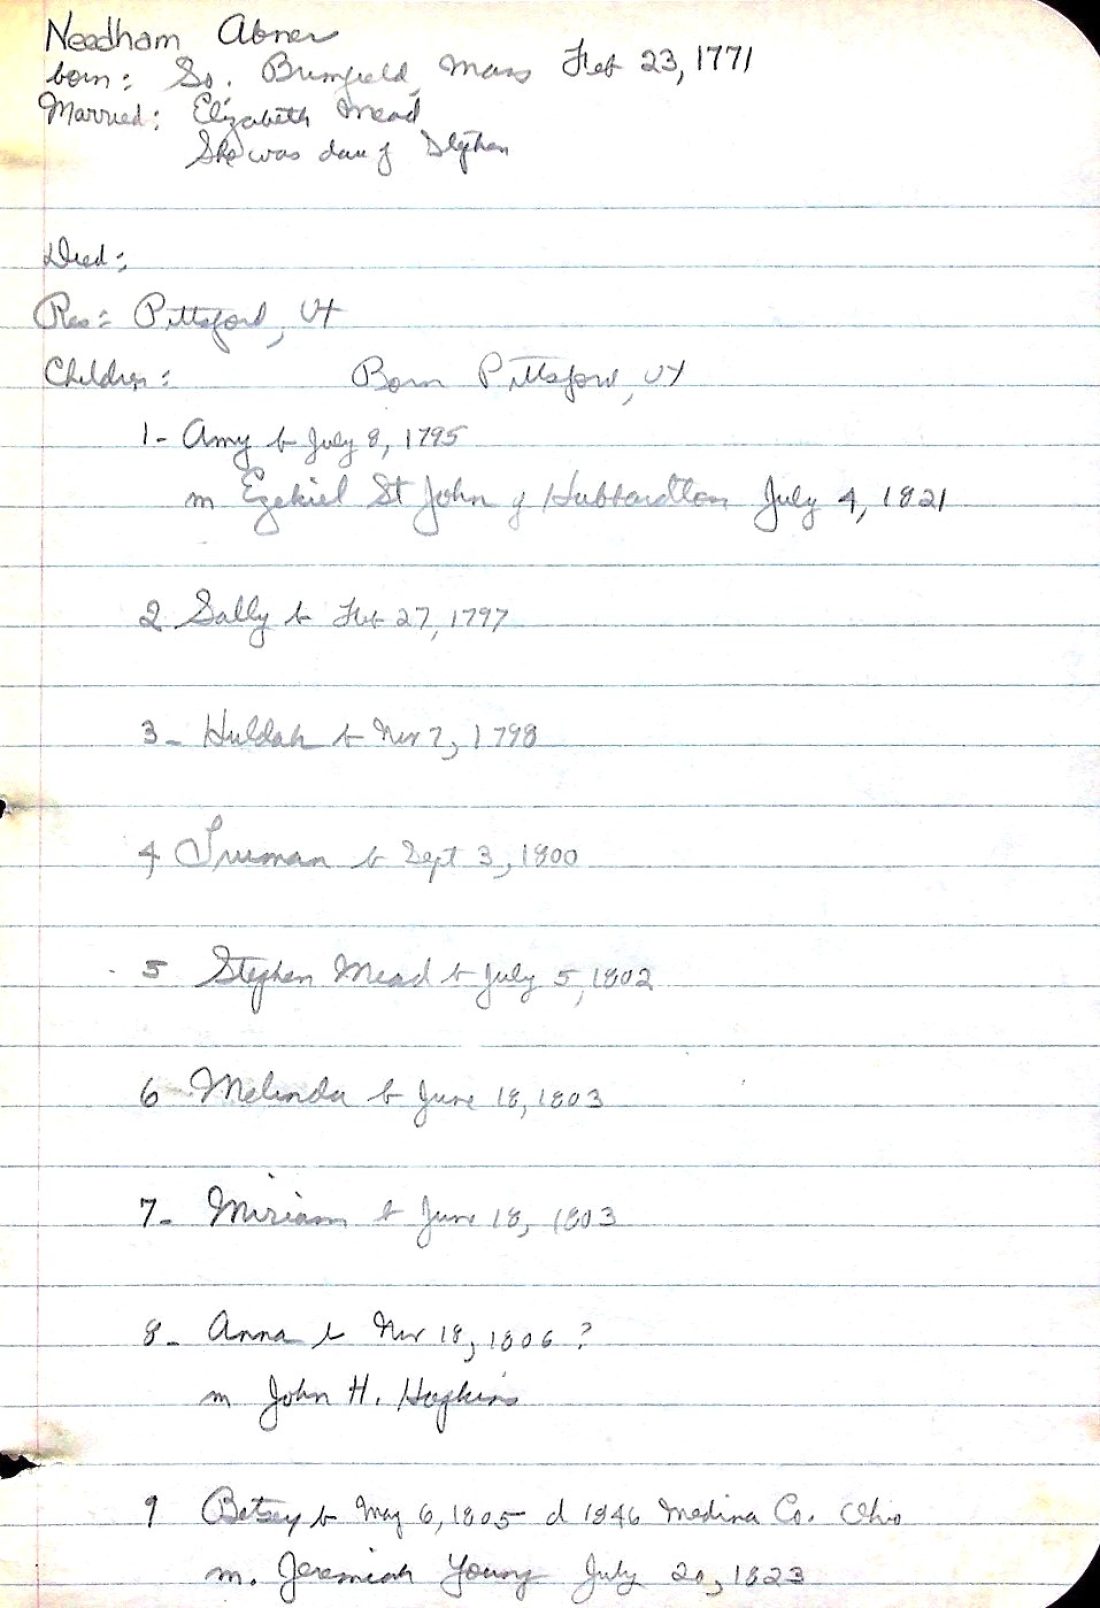 Needham Abner
born: So. Brimfield, Mass Feb 23, 1771
Married: Elizabeth Mead
She was dau of Stephen
Died:
Res: Pittsford, Vt
Children: Born Pittsford, VT
1- Amy b July 8, 1795
m Ezekiel St John of Hubbardton July 4, 1821
2 Sally b Feb 27, 1797
3- Huldah b Nov 7, 1798
4 Truman b Sept 3, 1800
5 Stephen Mead b July 5, 1802
6 Melinda b June 18, 1803
7- Miriam b June 18, 1803
8- Anna b Nov 18, 1806 ?
m John H. Hopkins
9 Betsey b May 6, 1805 d 1846 Medina Co. Ohio
m. Jeremiah Young July 20, 1823